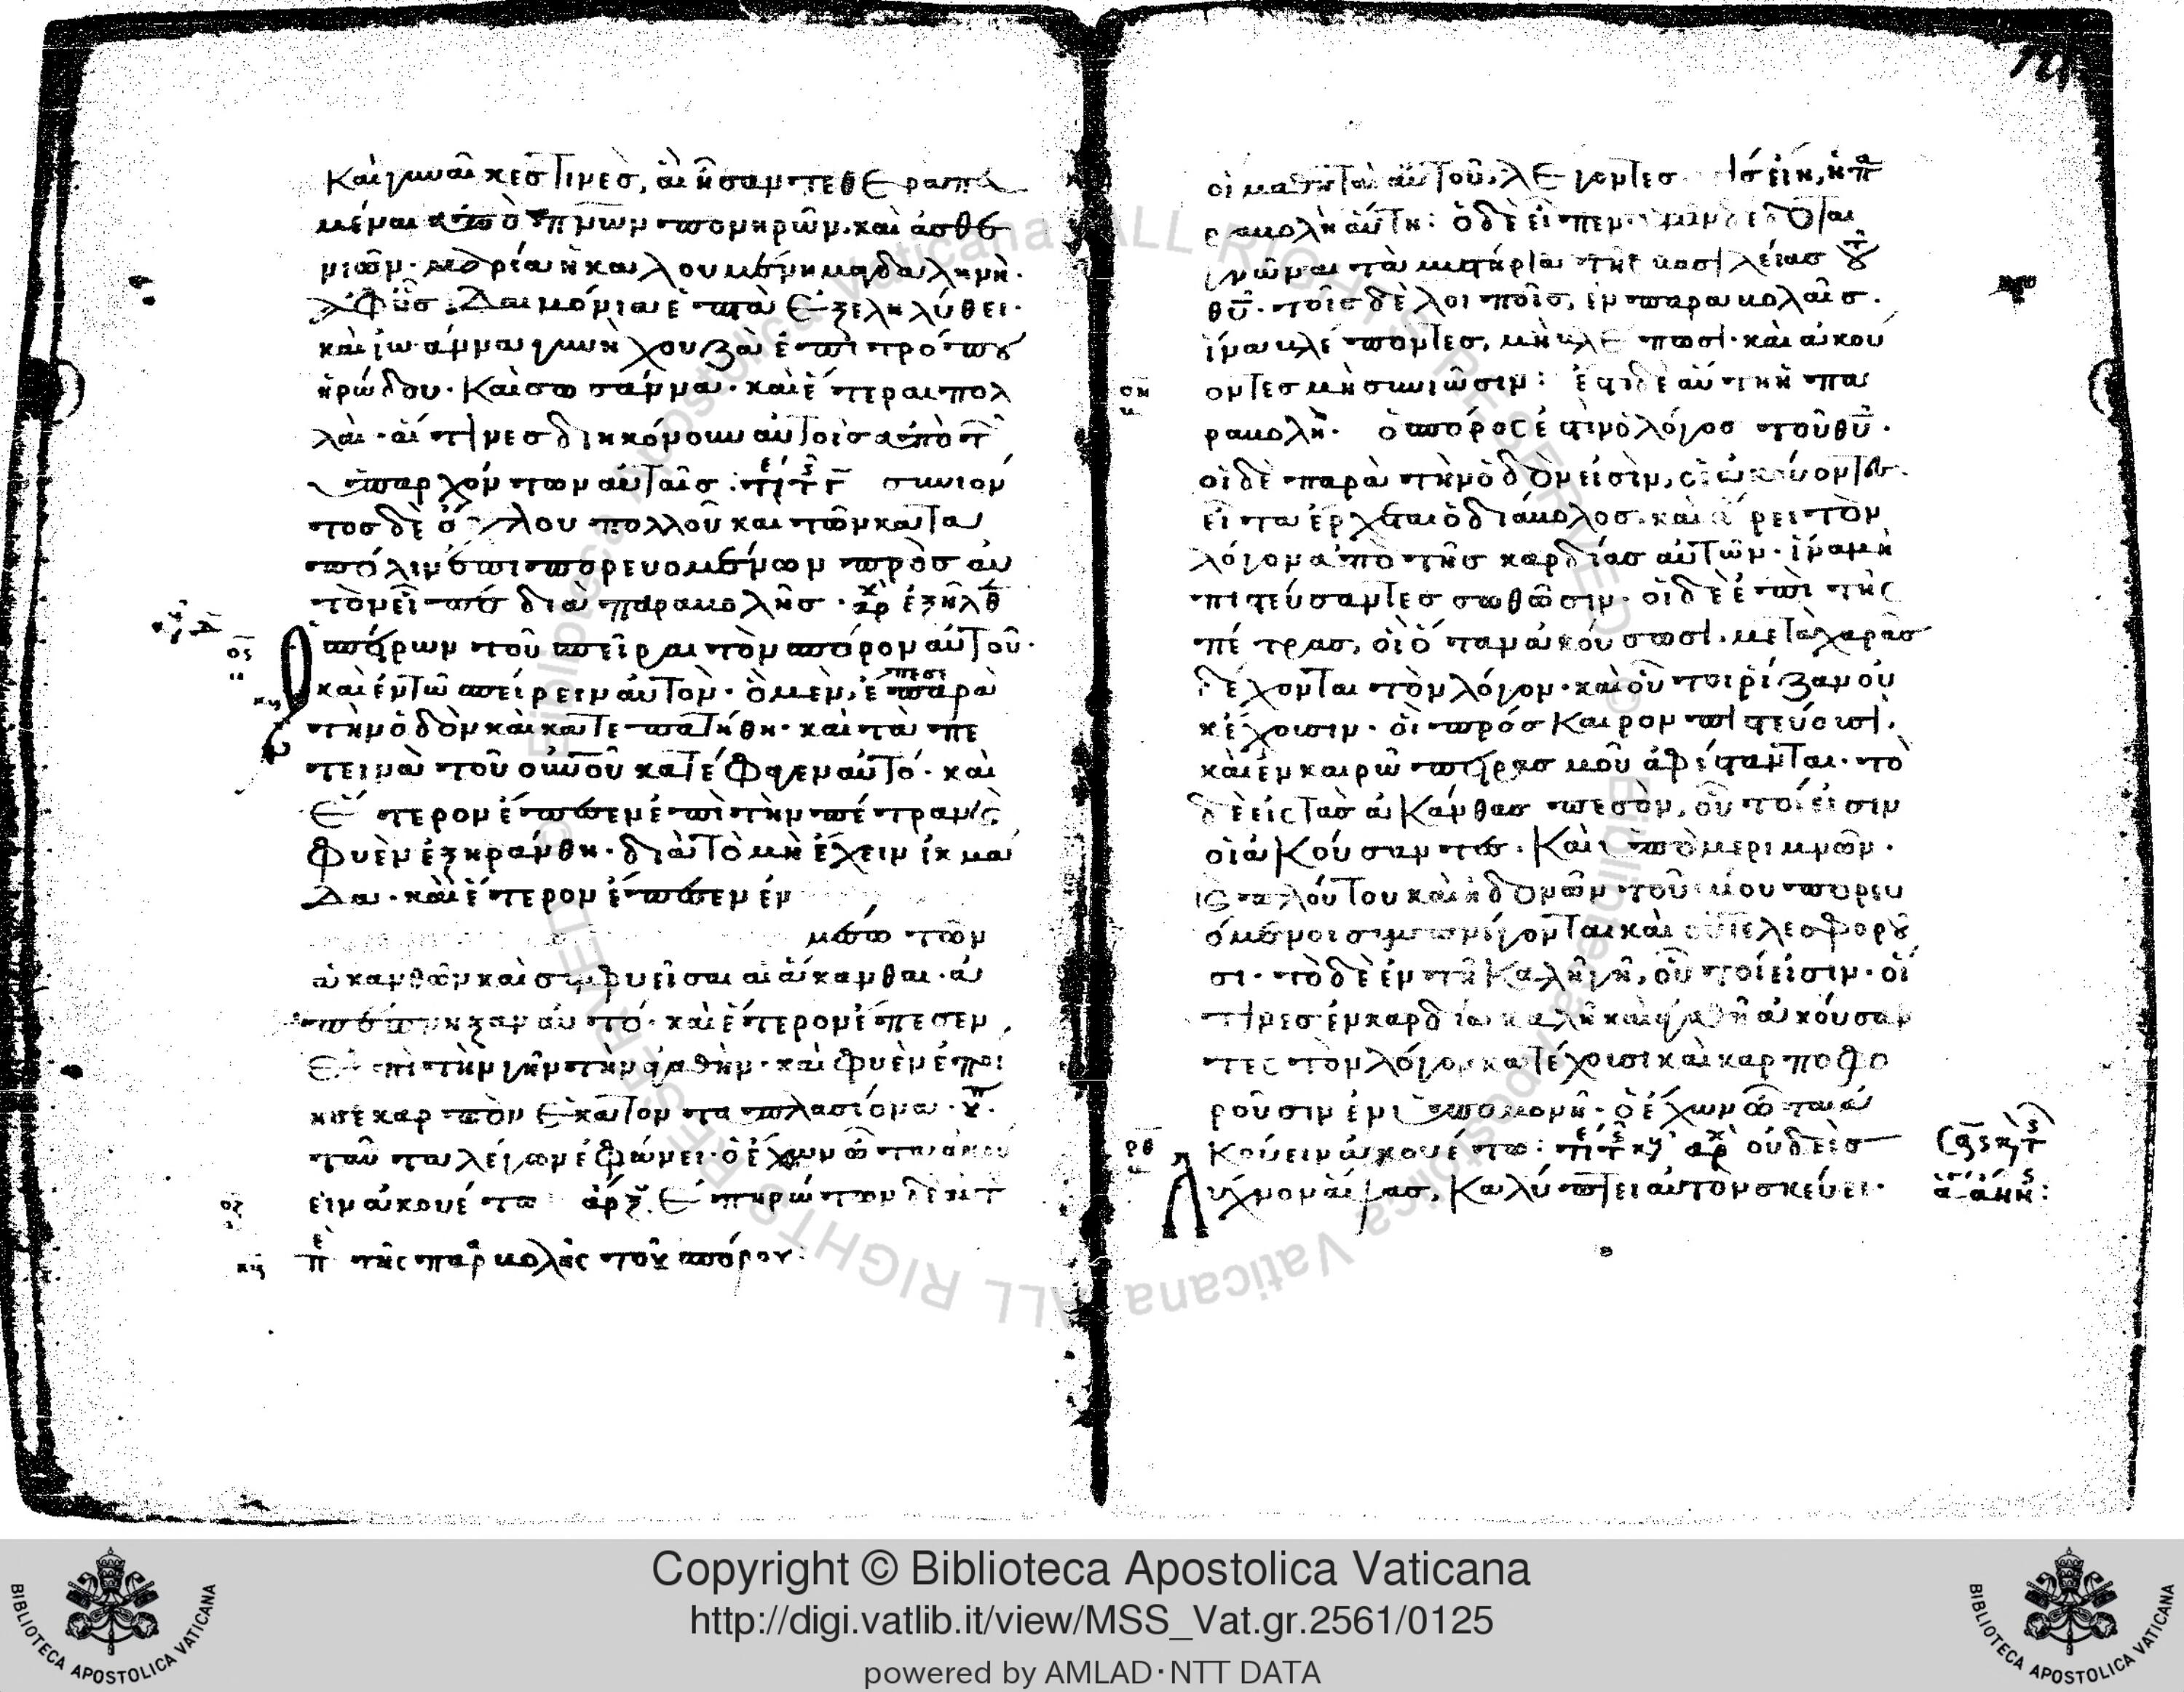 και γυναῖκες τινὲς, αἳ ἦσαν τεθεραπευ
μέναι ἀπὸ π̅ν̅ων πονηρῶν. καὶ ἀσθε
νιῶν. μαρία ἡ καλουμένη μαγδαληνὴ.
ἀφ ἧς δαιμόνια ἑπτὰ ἐξεληλύθει.
καὶ ἰωάννα γυνὴ χουζᾶ ἐπιτρόπου
ἡρώδου. καὶ σωσάννα. καὶ ἕτεραι πολ
λαὶ. αἵτινες διηκόνουν αὐτοῖς ἀπὸ τ
ὑπαρχόντων αὐταῖς: συνιόν
τος δὲ ὄχλου πολλοῦ καὶ τῶν κατα
πόλιν ἐπιπορευομένων πρὸς αὐ
τὸν εἶπε διὰ παραβολῆς. ἐξῆλθ
ὁ σπείρων τοῦ σπεῖραι τὸν σπόρον αὐτοῦ.
καὶ ἐν τῶ σπείρειν αὐτὸν. ὃ μὲν, ἔπεσε παρὰ
τὴν ὁδὸν καὶ κατεπατήθη. καὶ τὰ πε
τεινὰ τοῦ ο̅υ̅ν̅ο̅υ̅ κατέφαγεν αὐτό. καὶ
ἕτερον ἔπεσεν ἐπὶ τὴν πέτραν, καὶ
φυὲν ἐξηράνθη. διὰ τὸ μὴ ἔχειν ἰκμά
δα. καὶ ἕτερον ἔπεσεν ἐν
μέσω τῶν
ἀκανθῶν καὶ συμφυεῖσαι αἱ ἄκανθαι. ἀ
πέπνηξαν αὐτό. καὶ ἕτερον ἔπεσεν
ἐπὶ τὴν γῆν τὴν ἀγαθὴν. καὶ φυὲν ἐποί
ησε καρπὸν ἑκατονταπλασίονα.
ταῦτα λέγων ἐφώνει. ὁ ἔχων ὦτα ἀκού
ειν ἀκουέτω ἐπηρώτων δὲ
της παρβολῆς τοῦ σπόρου:
οἱ μαθηταὶ αὐτοῦ, λέγοντες τίς εἴη, ἡ πα
ραβολὴ αὕτη: ὁ δὲ εἶπεν. ὑμῖν δέδοται
γνῶναι τὰ μυστήρια τῆς βασιλείας τοῦ
θ̅υ̅. τοῖς δὲ λοιποῖς, ἐν παραβολαῖς.
ἵνα βλέποντες, μὴ βλέπωσι. καὶ ἀκού
οντες μὴ συνιῶσιν: ἔστι δὲ αὕτη ἡ πα
ραβολὴ. ὁ σπόρος ἐστὶν ὁ λόγος τοῦ θ̅υ̅.
οἱ δὲ παρὰ τὴν ὁδὸν εἰσὶν, οἱ ἀκούοντες.
εἶτα ἔρχεται ὁ διάβολος. καὶ αἴρει τὸν
λόγον ἀπὸ τῆς καρδίας αὐτῶν. ἵνα μὴ
πιστεύσαντες σωθῶσιν. οἱ δὲ ἐπὶ τῆς
πέτρας, οἳ ὅταν ἀκούσωσι. μετὰ χαρᾶς
δέχονται τὸν λόγον. καὶ οὗτοι ῥίζαν οὐ
κ ἔχουσιν. οἳ πρὸς καιρον πιστεύουσι,
καὶ ἐν καιρῶ πειρασμοῦ ἀφίστανται. τὸ
δὲ εἰς τὰς ἀκάνθας πεσὸν, οὗτοί εἰσιν
οἱ ἀκούσαντες. καὶ ὑπὸ μεριμνῶν.
καὶ πλούτου καὶ ἡδονῶν τοῦ βίου πορευ
όμενοι συμπνίγονται καὶ οὐ τελεσφοροῦ
σι. τὸ δὲ ἐν τῆ καλῆ γῆ, οὗτοί εἰσιν. οἵ
τινες ἐν καρδία καλῆ καὶ ἀγαθῆ ἀκούσαν
τες τὸν λόγον κατέχουσι καὶ καρποφο
ροῦσιν ἐν ὑπομονῆ. ὁ ἔχων ὦτα ἀ
κούειν ἀκουέτω: οὐδεὶς
λύχνον ἅψας, καλύπτει αὐτὸν σκεύει.
Copyright © Biblioteca Apostolica Vaticana
http://digi.vatlib.it/view/MSS_Vat.gr.2561/0125
powered by AMLAD·NTT DATA
BIBLIOTECA APOSTOLICA VATICANA
BIBLIOTECA APOSTOLICA VATICANA